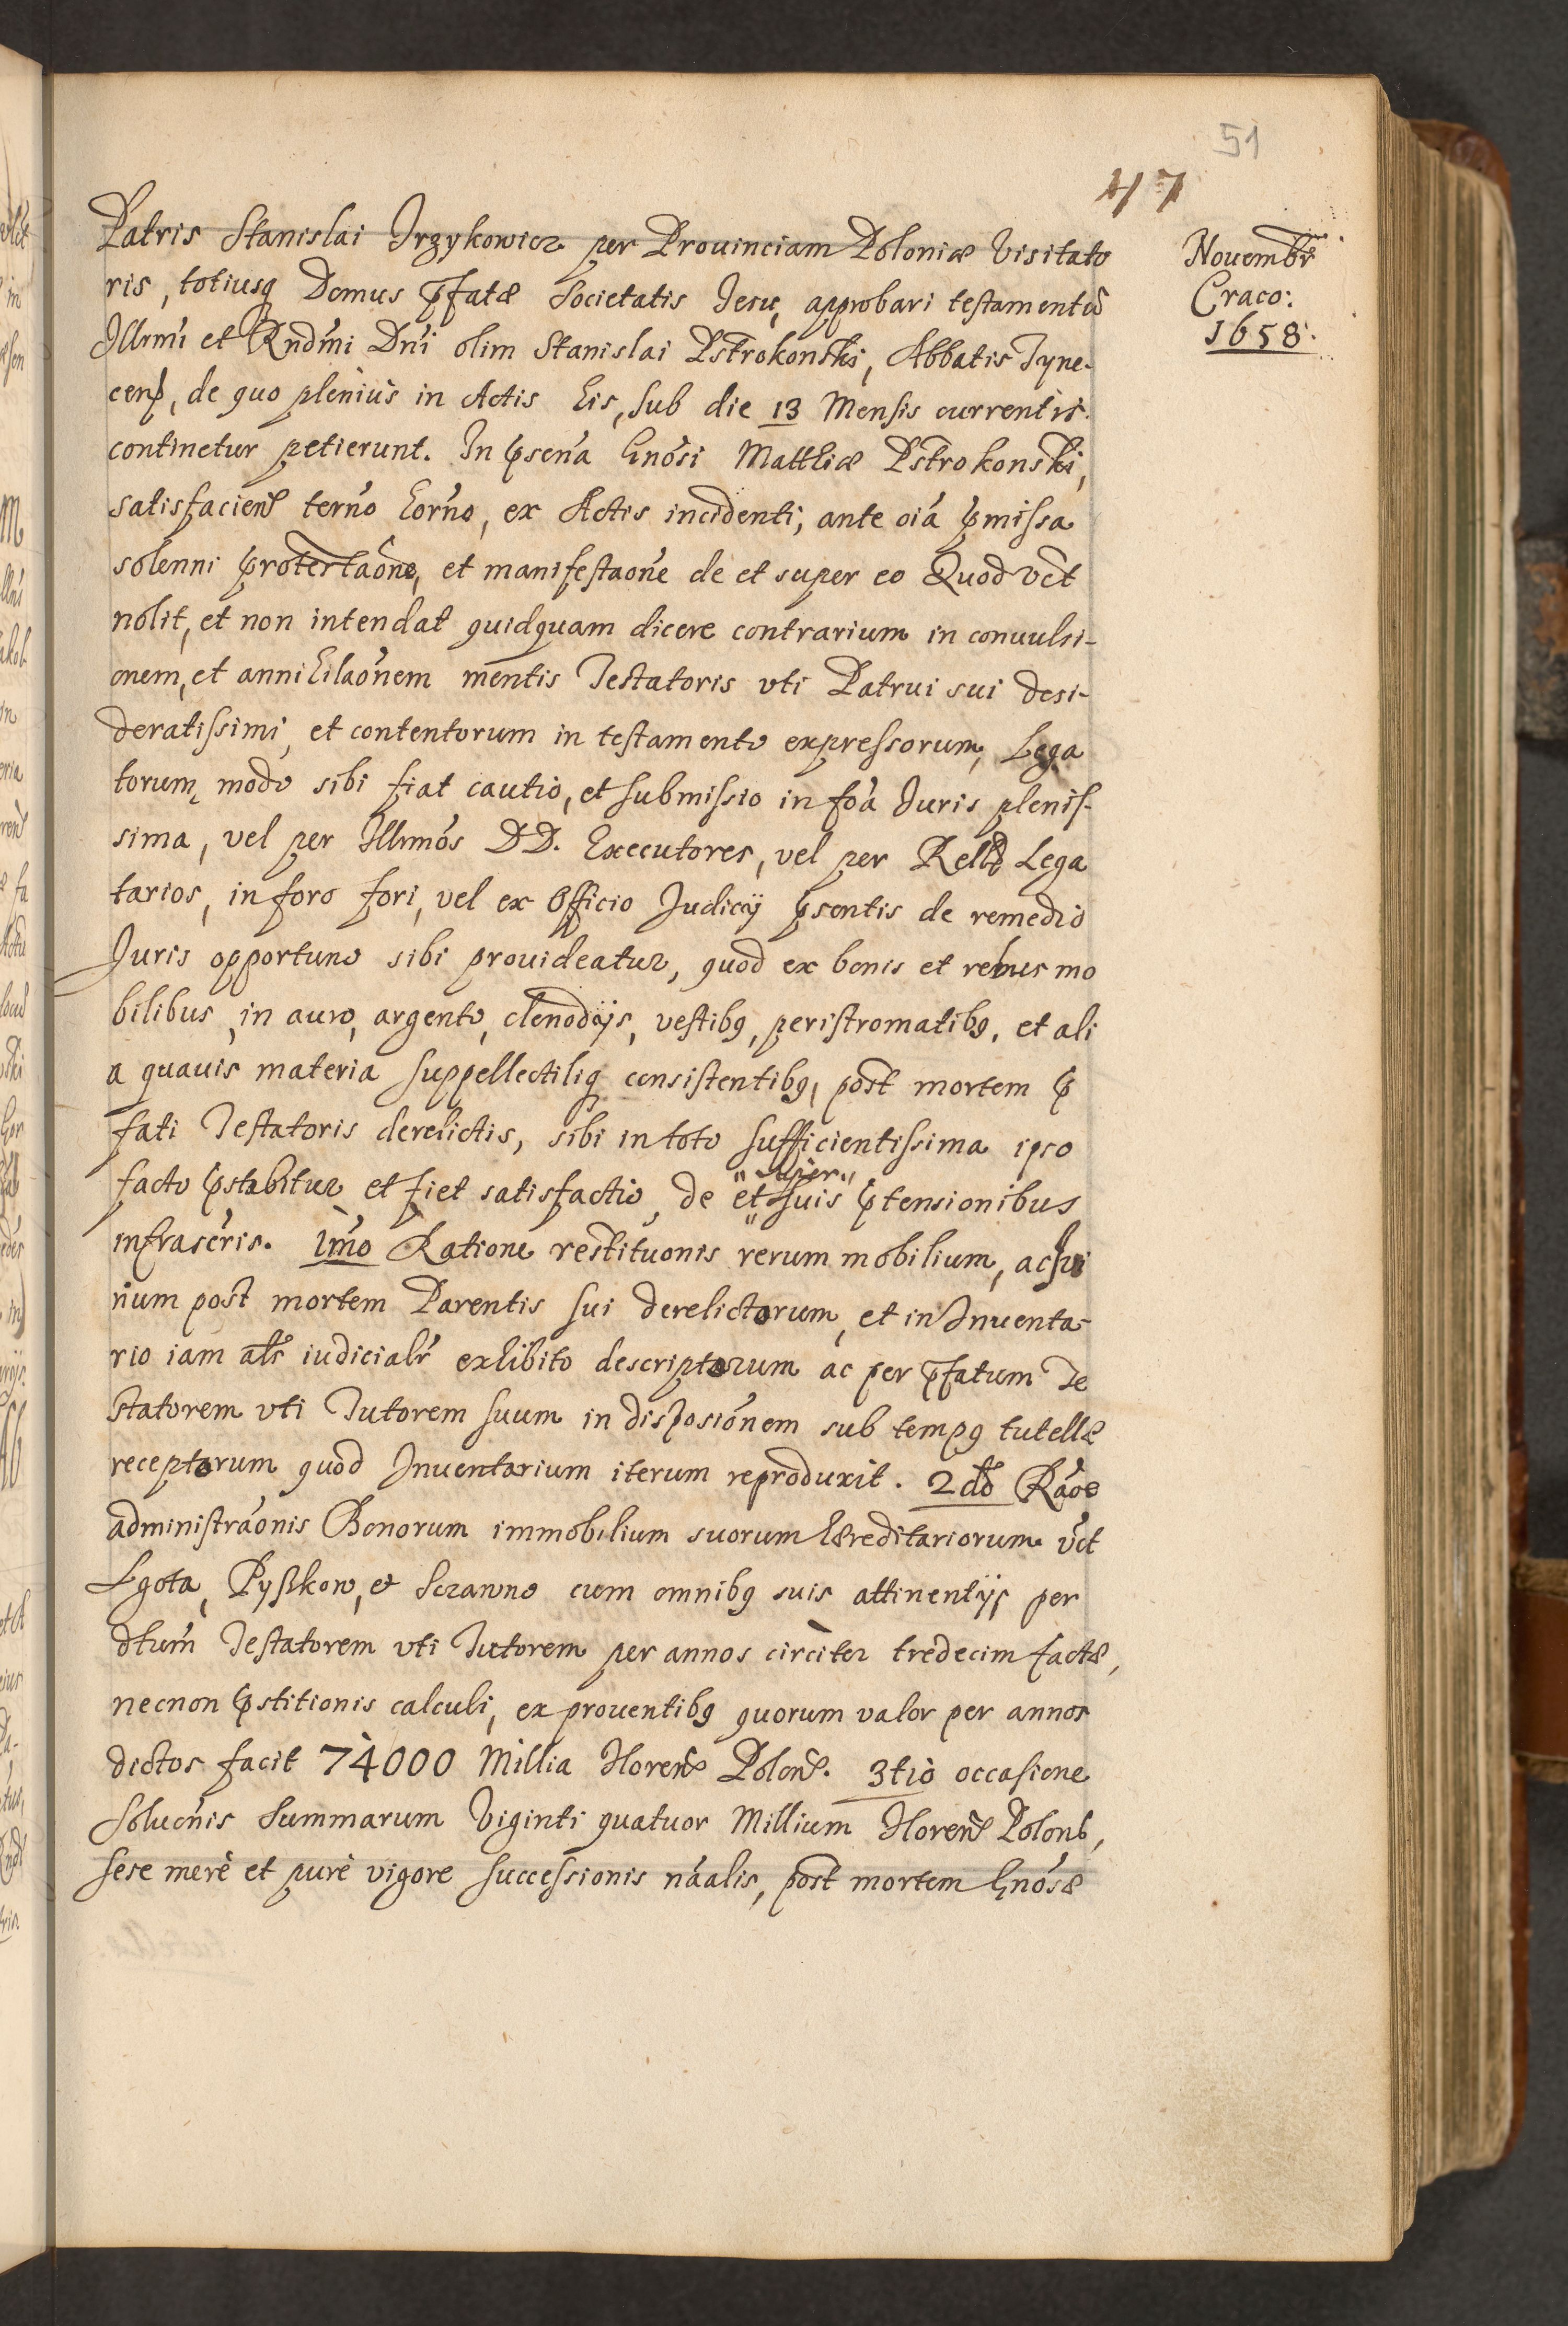 51
47
Novembr
Craco:
1658.
Patris Stanislai Irzykowicz per Prouinciam Poloniæ Visitato
ris, totiusq Domus pfatæ Societatis Iesu, approbari testamentū
Illrmi et Rndmi Dni olim Stanislai Pstrokonski, Abbatis Tyne-
cens, de quo plenius in Actis his, sub die 13 Mensis currentis
continetur petierunt. In psena Gnosi Matthiæ Pstrokonski,
satisfaciens terno horno, ex Actis incidenti, ante oia pmissa
solenni protestaone, et manifestaone de et super eo Quod vct
nolit, et non intendat quidquam dicere contrarium in conuulsi-
onem, et annihilaonem mentis Testatoris vti Patrui sui desi-
deratissimi, et contentorum in testamento expressorum, Lega
torum, modo sibi fiat cautio, et submissio in foa Iuris plenis-
sima, vel per Illrmos DD. Executores, vel per Lega
tarios, in foro fori, vel ex Officio Iudicij psentis de remedio
Iuris opportuno sibi prouideatur, quod ex bonis et rebus mo
bilibus, in auro, argento, clenodijs, vestibq, peristromatibq, et ali
a quauis materia suppellectiliq consistentibq, post mortem p
fati Testatoris derelictis, sibi in toto sufficientissima ipso
facto pstabitur et fiet satisfactio, de et super suis ptensionibus
infrascris. 1mo Ratione restituonis rerum mobilium, ac
rium post mortem Parentis sui derelictorum, et in Inuenta-
rio iam als iudicialr exhibito descriptorum ac per pfatum Te
statorem vti Tutorem suum in disposionem sub tempq tutellæ
receptorum quod Inuentarium iterum reproduxit. 2do Raoe
administraonis Bonorum immobilium suorum hæreditariorum vct
Lgota, Pyszkow, et Sczawno cum omnibq suis attinentijs per
dtum Testatorem vti Tutorem per annos circiter tredecim factæ,
necnon pstitionis calculi, ex prouentibq quorum valor per annos
dictos facit 74000 Millia Floren Polon. 3tio occasione
Soluonis Summarum Viginti quatuor Millium Floren Polon,
sese merè et purè vigore successionis naalis, post mortem Gnosæ